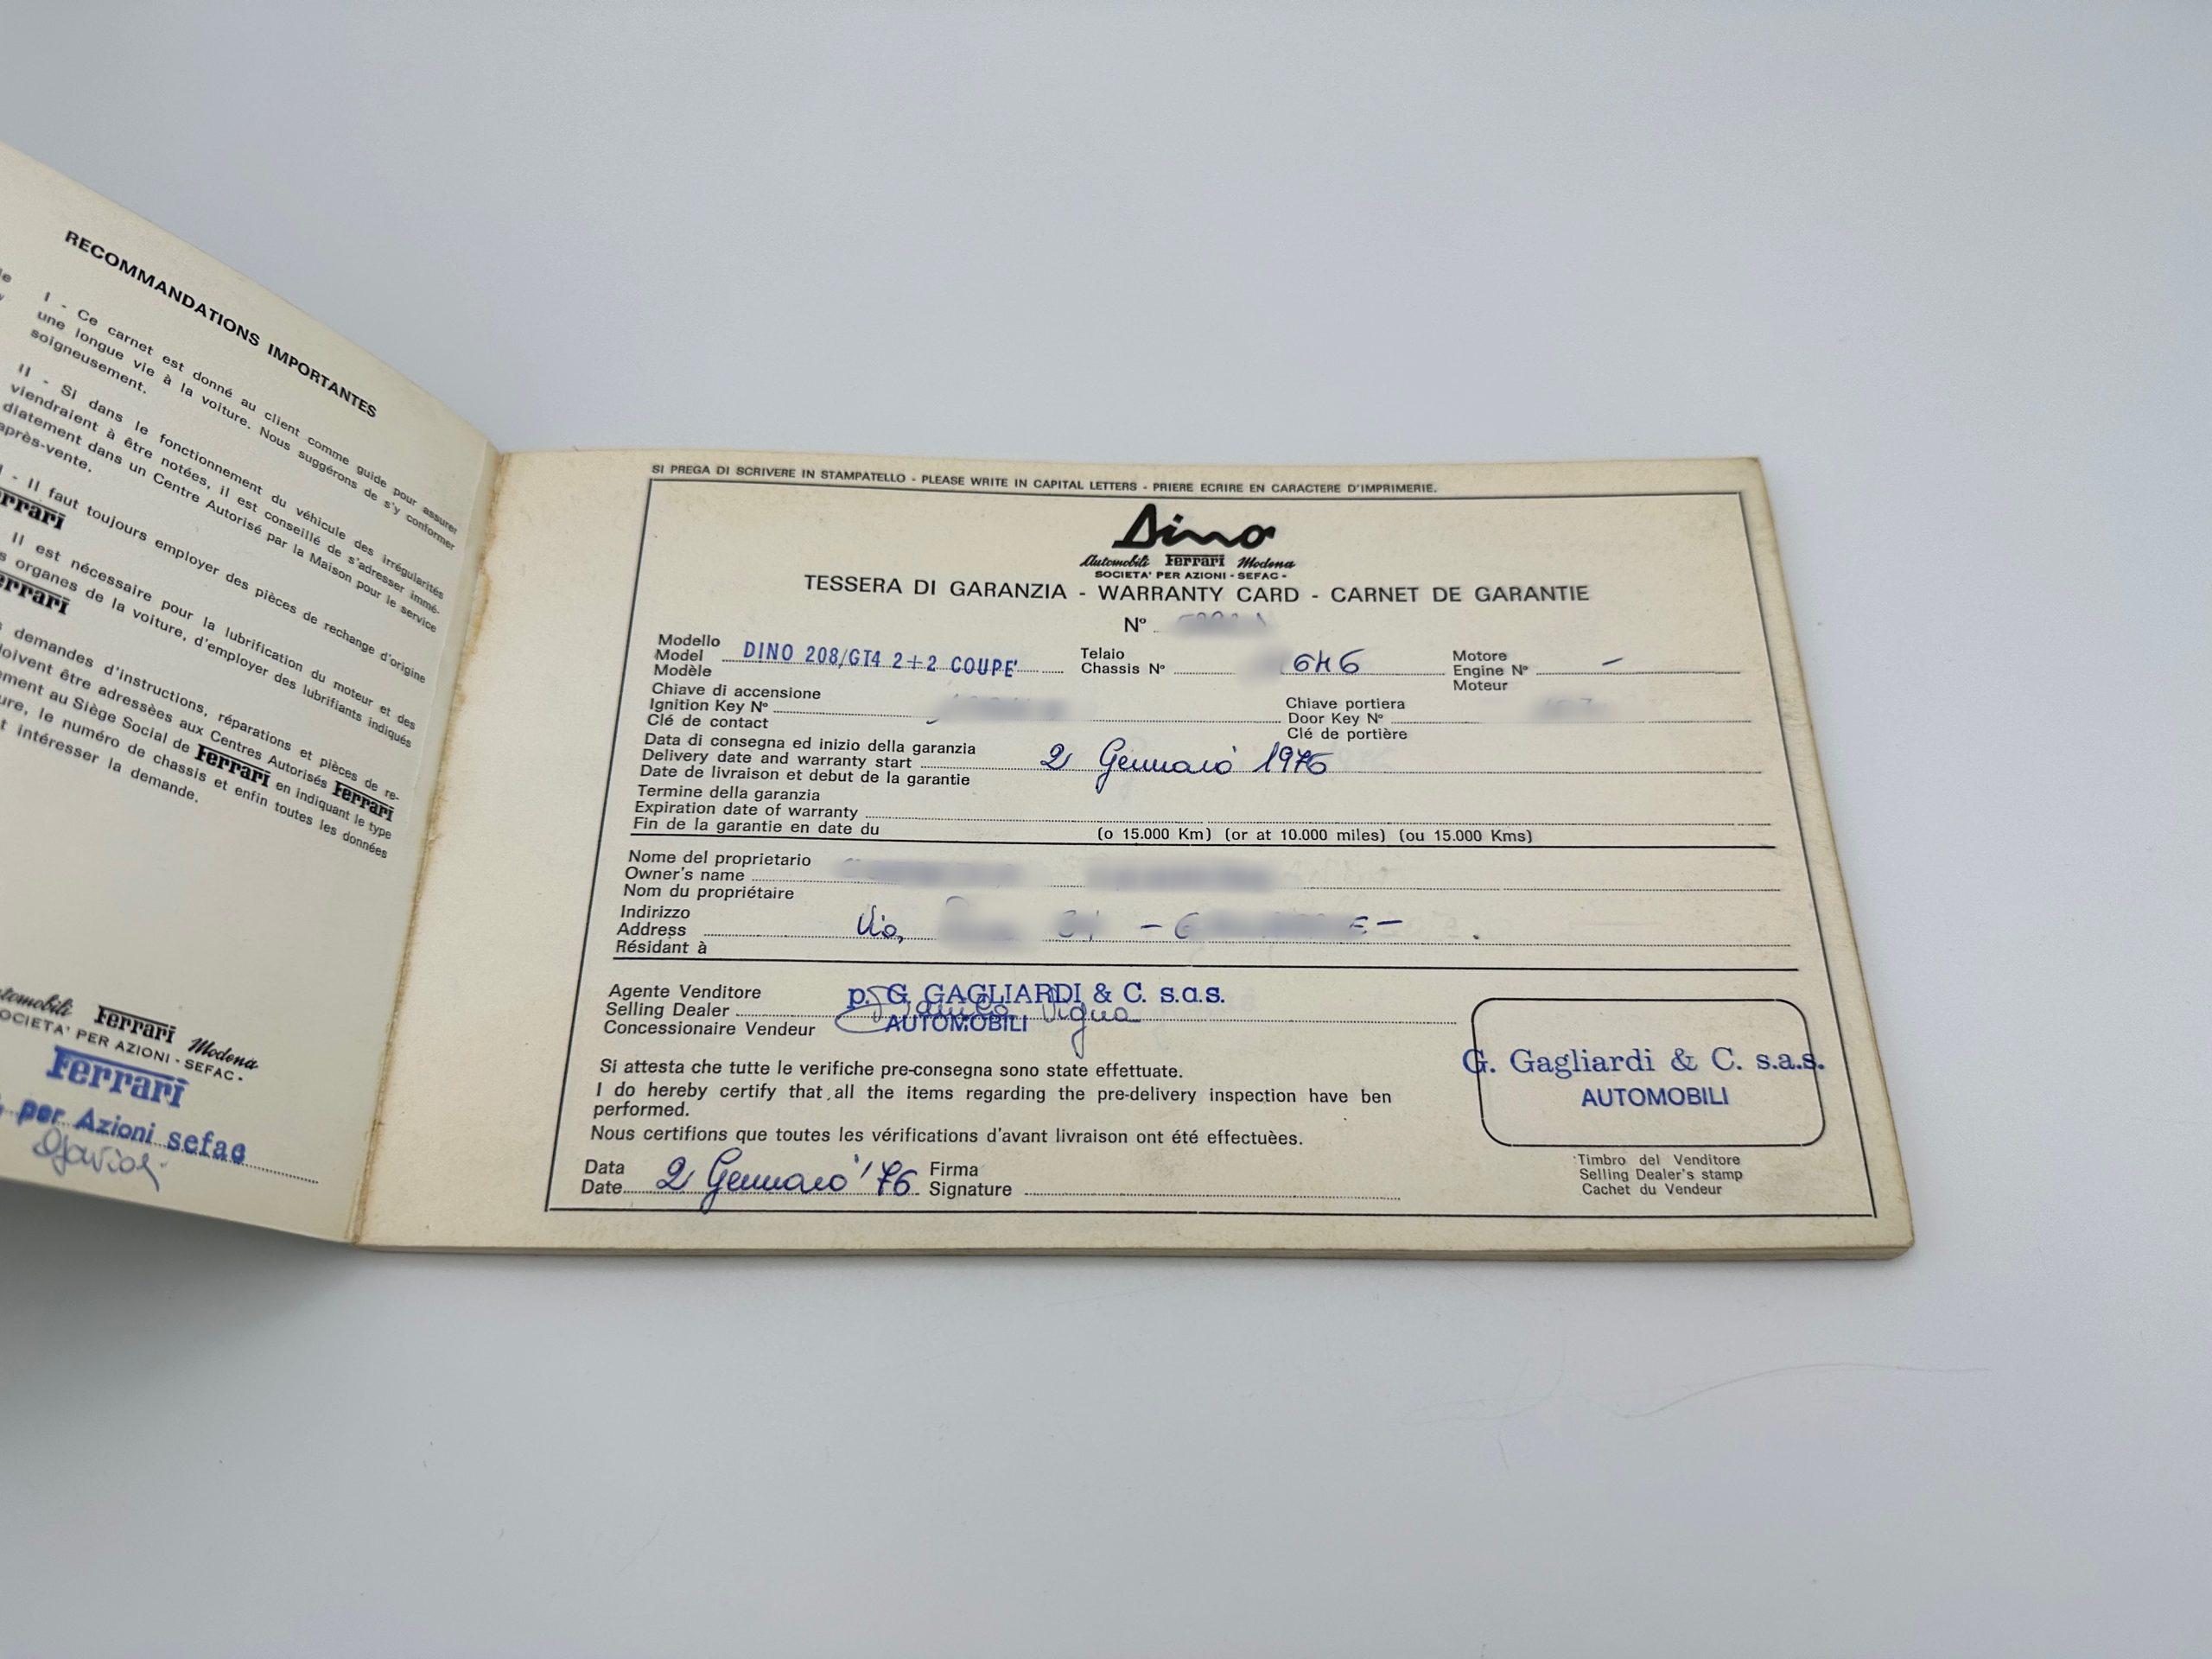 RECOMMANDATIONS IMPORTANTES
I - Ce carnet est donné au client comme guide pour assurer
une longue vie à la voiture. Nous suggérons de s'y conformer
soigneusement.
II - Si dans le fonctionnement du véhicule des irrégularités
viendraient à être notées, il est conseillé de s'adresser immé-
diatement dans un Centre Autorisé par la Maison pour le service
après-vente.
- Il faut toujours employer des pièces de rechange d'origine
Ferrari
Il est nécessaire pour la lubrification du moteur et des
organes de la voiture, d'employer des lubrifiants indiqués
Ferrari
demandes d'instructions, réparations et pièces de re-
doivent être adressèes aux Centres Autorisés Ferrari
au Siège Social de Ferrari en indiquant le type
le numéro de chassis et enfin toutes les données
intéresser la demande.
Automobili Ferrari Modena
SOCIETA' PER AZIONI - SEFAC -
Ferrari
per Azioni sefac
SI PREGA DI SCRIVERE IN STAMPATELLO - PLEASE WRITE IN CAPITAL LETTERS - PRIERE ECRIRE EN CARACTERE D'IMPRIMERIE.
Dino
Automobili Ferrari Modena
SOCIETA' PER AZIONI - SEFAC -
TESSERA DI GARANZIA - WARRANTY CARD - CARNET DE GARANTIE
N°
Modello
Model DINO 208/GT4 2+2 COUPE'
Modèle
Telaio
Chassis N° 6H6
Motore
Engine N° —
Moteur
Chiave di accensione
Ignition Key N°
Clé de contact
Chiave portiera
Door Key N°
Clé de portière
Data di consegna ed inizio della garanzia
Delivery date and warranty start 2 Gennaio 1976
Date de livraison et debut de la garantie
Termine della garanzia
Expiration date of warranty
Fin de la garantie en date du (o 15.000 Km) (or at 10.000 miles) (ou 15.000 Kms)
Nome del proprietario
Owner's name
Nom du propriétaire
Indirizzo
Address Via,
Résidant à
Agente Venditore p. G. GAGLIARDI & C. s.a.s.
Selling Dealer
Concessionaire Vendeur AUTOMOBILI
Si attesta che tutte le verifiche pre-consegna sono state effettuate.
I do hereby certify that all the items regarding the pre-delivery inspection have ben
performed.
Nous certifions que toutes les vérifications d'avant livraison ont été effectuèes.
Data
Date 2 Gennaio '76
Firma
Signature
G. Gagliardi & C. s.a.s.
AUTOMOBILI
Timbro del Venditore
Selling Dealer's stamp
Cachet du Vendeur